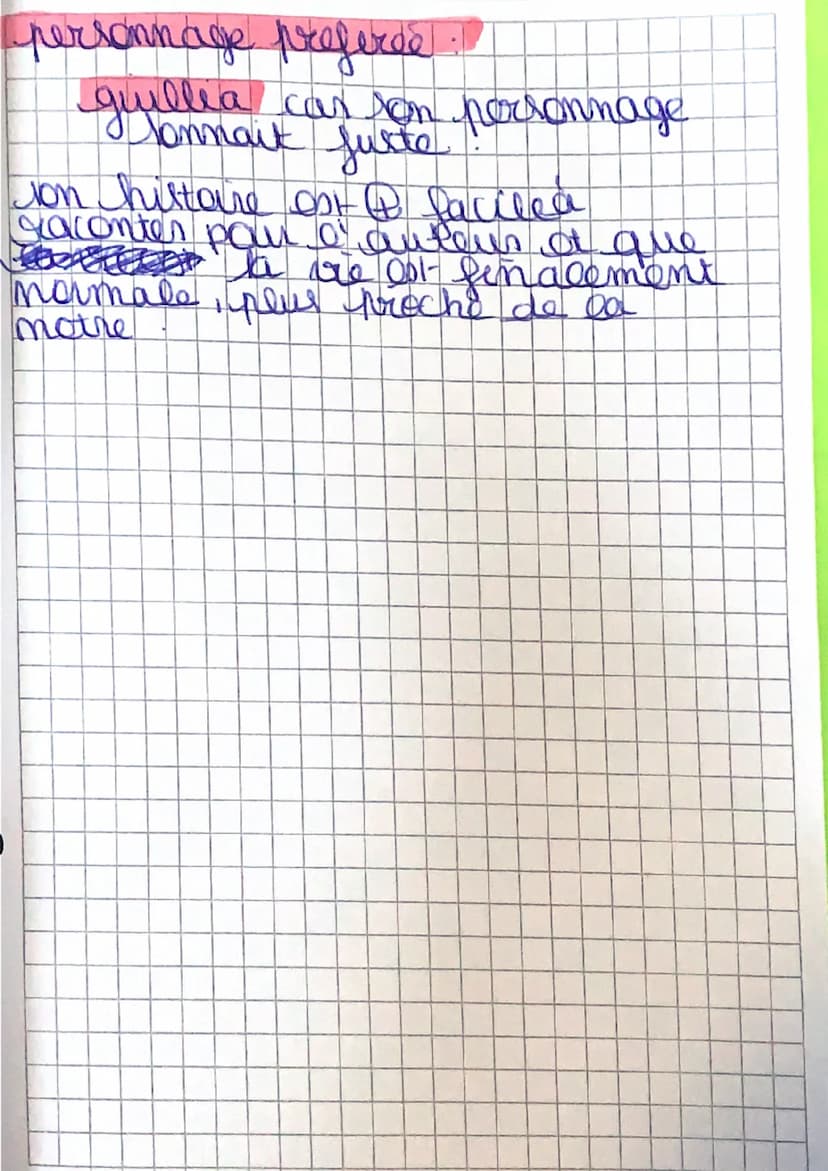 personnage preferée :
giullia car son personnage
sonnait juste.
son histoire est ⊕ facile à
raconter par l'auteur et que
sa vie est finalement
normale, plus proche de la
notre.